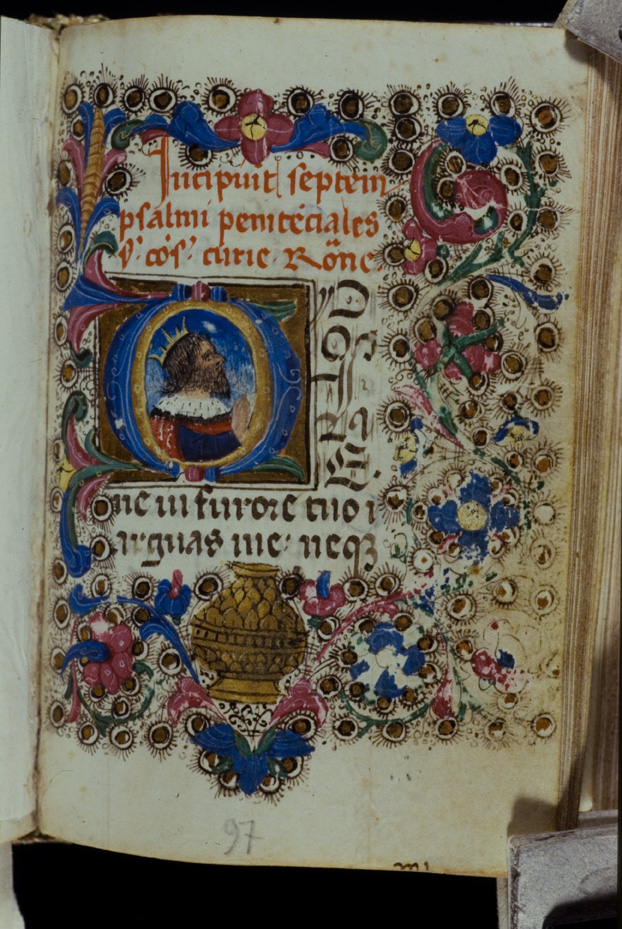 Incipiūt septem
psalmi penitēciales
s' cōs' curie Rōne
ne in furore tuo
arguas me: neqꝫ
97